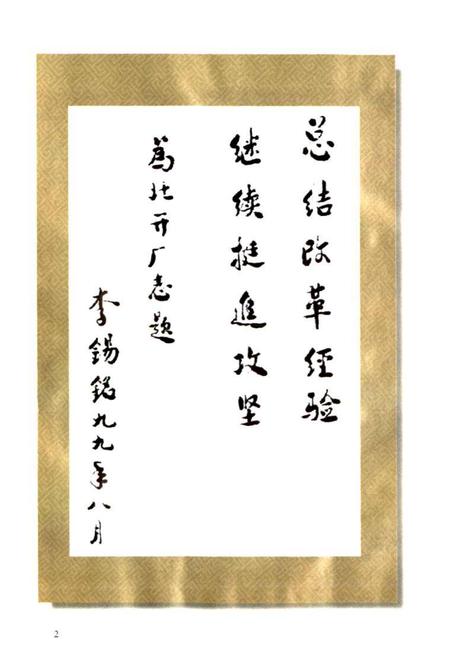 总结改革经验
继续挺進攻坚
為北开厂志题
李锡铭九九年八月
2